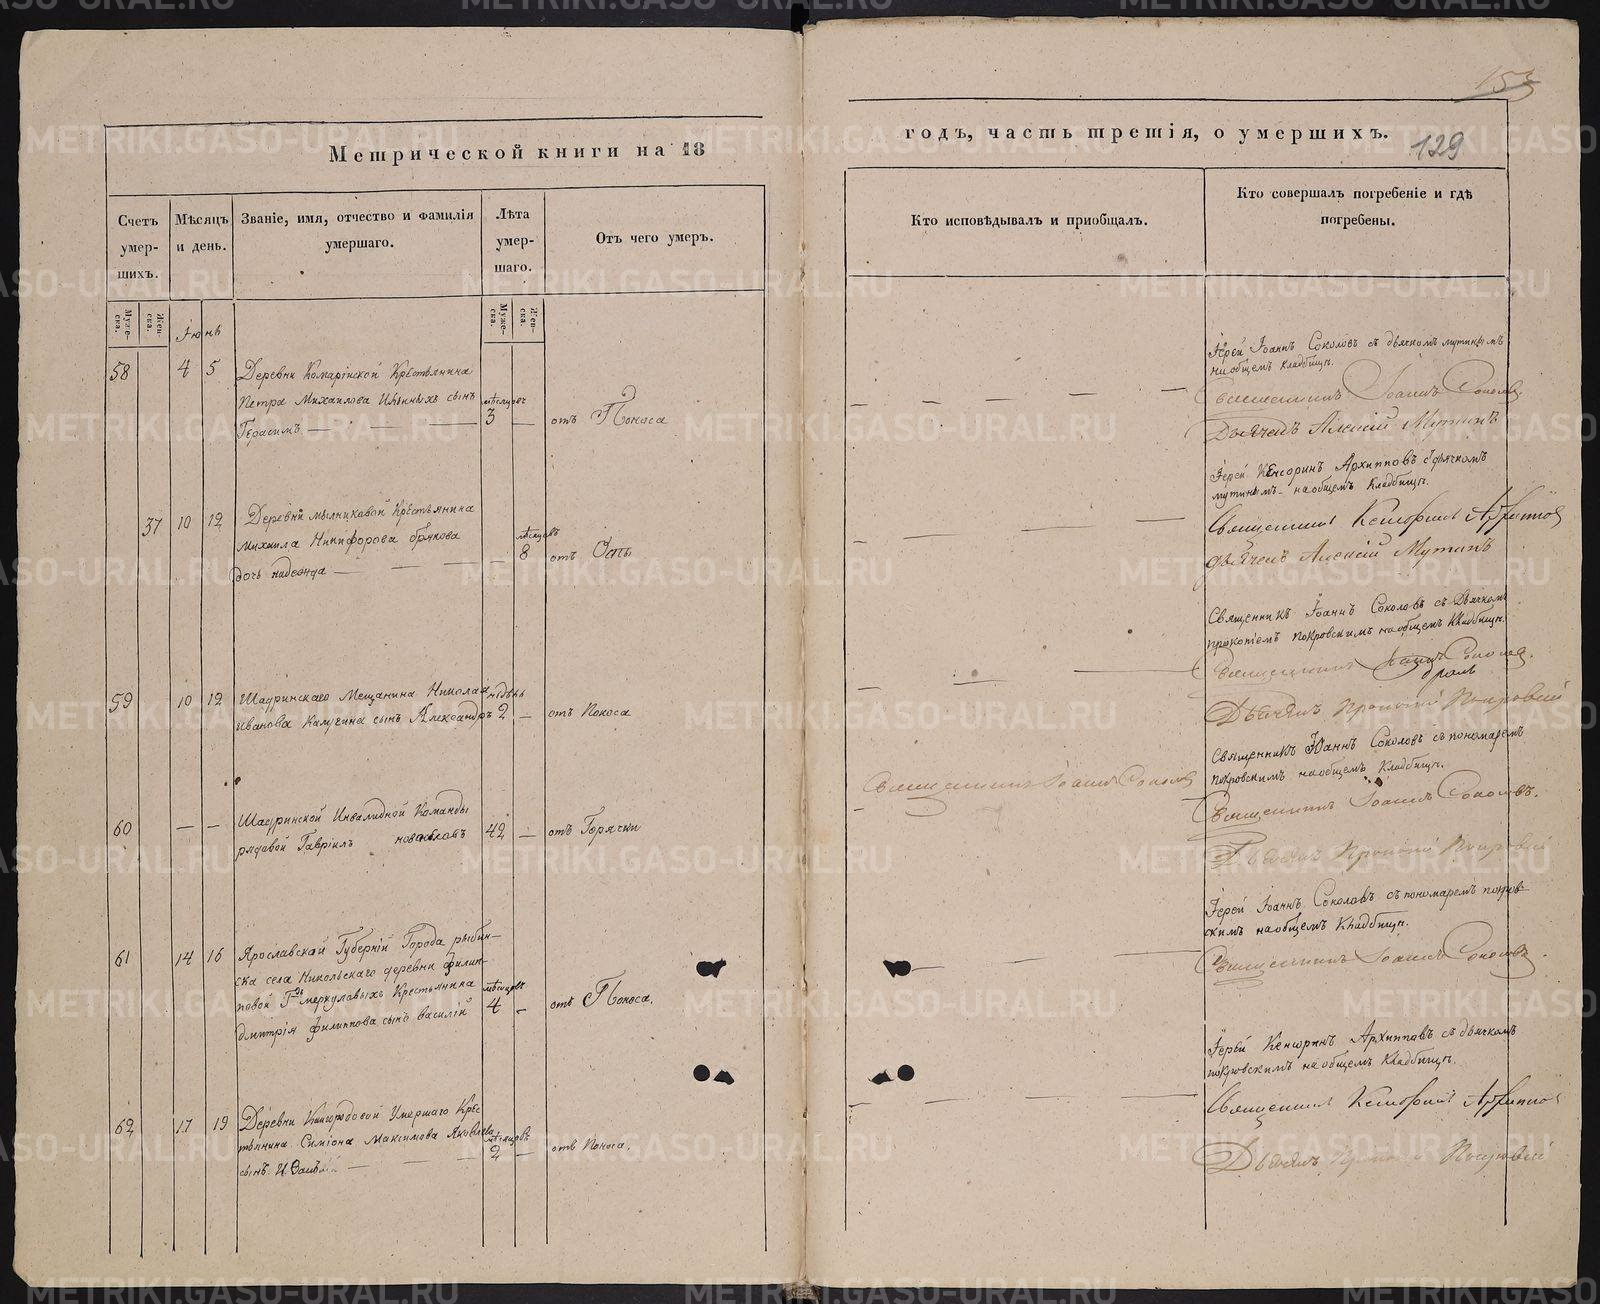 153
129
Метрической книги на 18
годъ, часть третія, о умершихъ.
Счетъ умер-шихъ.
Мѣсяцъ и день.
Званіе, имя, отчество и фамилія умершаго.
Лѣта умер-шаго.
Отъ чего умеръ.
Кто исповѣдывалъ и пріобщалъ.
Кто совершалъ погребеніе и гдѣ погребены.
Муже-ска.
Жен-ска.
Муже-ска.
Жен-ска.
Іюнь
58 4 5
Деревни Комарінской Крестьянина
Петра Михаилова сынъ
Герасимъ
мѣсяцовъ
3
отъ Поноса
Іерей Іоаннъ Соколовъ съ дьячкомъ мутинымъ
на общемъ кладбищѣ.
Священникъ Іоаннъ Соколовъ.
Дьячекъ Алексій Мутинъ
37 10 12
Деревни мыльниковой Крестьянина
Михаила Никифорова
дочь надежда
мѣсяцовъ
8
отъ Оспы
Іерей Кенсоринъ Архипповъ съ дьячкомъ
мутинымъ на общемъ Кладбищѣ.
Священникъ Кенсоринъ Архипповъ
дьячекъ Алексій Мутинъ
59 10 12
Шадринскаго Мещанина Николая
Иванова Калугина сынъ Александръ
недѣль
2
отъ Поноса
Священникъ Іоаннъ Соколовъ съ Дьячкомъ
прокопіемъ покровскимъ на общемъ Кладбищѣ.
Священникъ Іоаннъ Соколовъ.
Дьячекъ Прокопій Покровскій
60
Шадринской Инвалидной Команды
рядовой Гавріилъ
42
отъ Горячки
Священникъ Іоаннъ Соколовъ
Священникъ Іоаннъ Соколовъ съ пономаремъ
покровскимъ на общемъ Кладбищѣ.
Священникъ Іоаннъ Соколовъ.
Дьячекъ Прокопій Покровскій
61 14 16
Ярославской Губерніи Города рыбин-
ска села Никольскаго деревни филип-
повой Гдъ меркуловыхъ Крестьянина
дмитрія филиппова сынъ василій
мѣсяцовъ
4
отъ Поноса.
Іерей Іоаннъ Соколовъ съ пономаремъ покров-
скимъ на общемъ Кладбищѣ.
Священникъ Іоаннъ Соколовъ.
62 17 19
Деревни Умершаго Крес
тьянина Симіона Максимова Яковлева
сынъ
мѣсяцовъ
2
отъ Поноса.
Іерей Кенсоринъ Архипповъ съ дьячкомъ
покровскимъ на общемъ Кладбищѣ.
Священникъ Кенсоринъ Архипповъ
Дьячекъ Прокопій Покровскій
METRIKI.GASO-URAL.RU